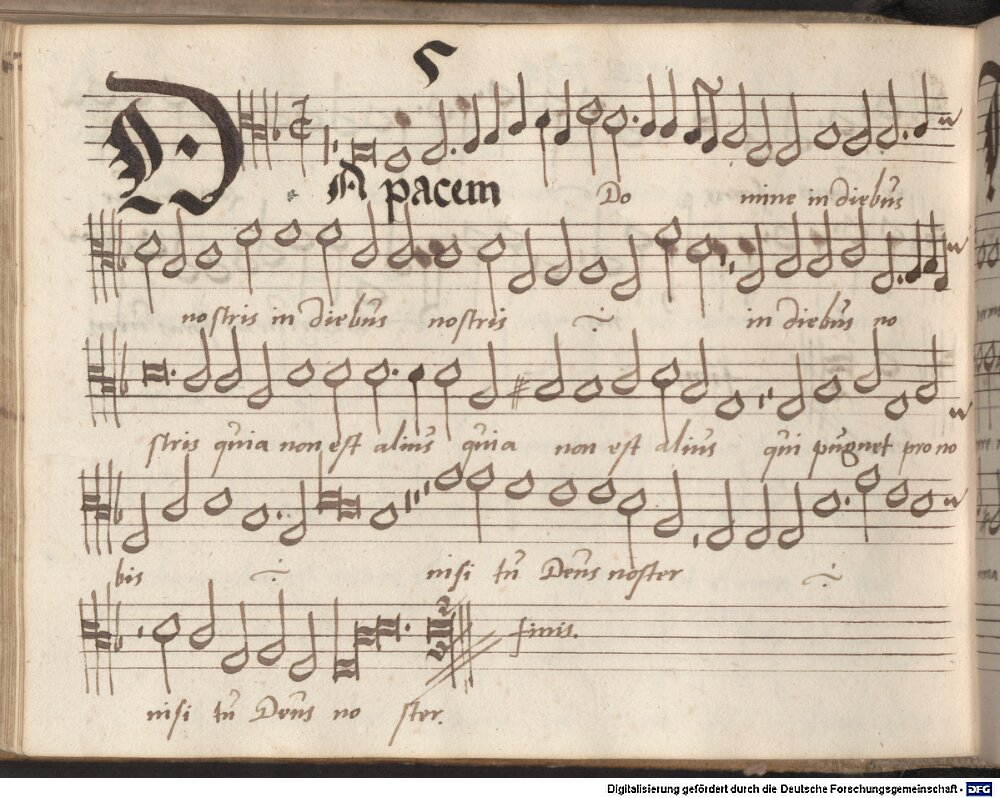 5
DA pacem Do mine in diebus
nostris in diebus nostris ·/· in diebus no
stris quia non est alius quia non est alius qui pugnet pro no
bis ·/· nisi tu Deus noster ·/·
finis.
nisi tu Deus no ster.
Digitalisierung gefördert durch die Deutsche Forschungsgemeinschaft - DFG